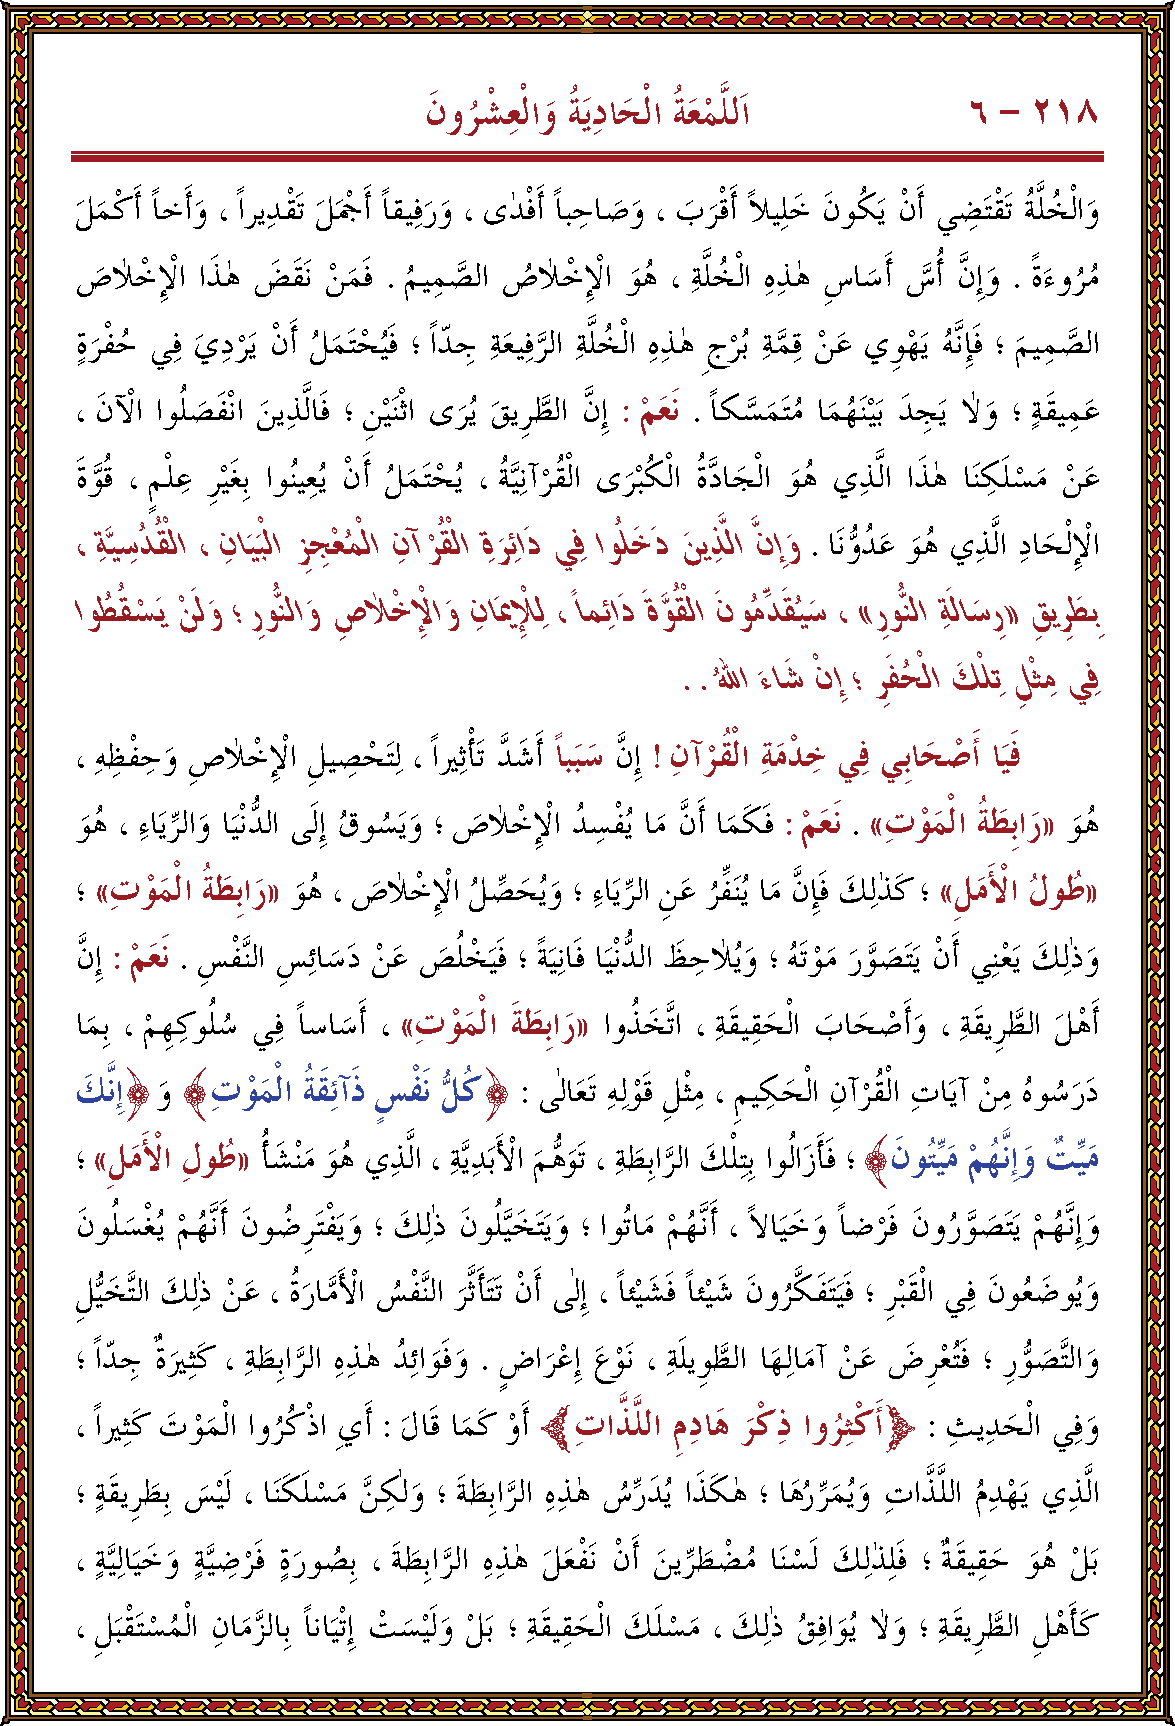 ٢١٨ – ٦ اَللَّمْعَةُ الْحَادِيَةُ وَالْعِشْرُونَ
وَالْخُلَّةُ تَقْتَضِي أَنْ يَكُونَ خَلِيلاً أَقْرَبَ ، وَصَاحِباً أَفْدٰى ، وَرَفِيقاً أَجْمَلَ تَقْدِيراً ، وَأَخاً أَكْمَلَ
مُرُوءَةً . وَإِنَّ أُسَّ أَسَاسِ هٰذِهِ الْخُلَّةِ ، هُوَ الْإِخْلاٰصُ الصَّمِيمُ . فَمَنْ نَقَضَ هٰذَا الْإِخْلاٰصَ
الصَّمِيمَ ؛ فَإِنَّهُ يَهْوِي عَنْ قِمَّةِ بُرْجِ هٰذِهِ الْخُلَّةِ الرَّفِيعَةِ جِدّاً ؛ فَيُحْتَمَلُ أَنْ يَرْدِيَ فِي حُفْرَةٍ
عَمِيقَةٍ ؛ وَلاٰ يَجِدَ بَيْنَهُمَا مُتَمَسَّكاً . نَعَمْ : إِنَّ الطَّرِيقَ يُرَى اثْنَيْنِ ؛ فَالَّذِينَ انْفَصَلُوا الْآنَ ،
عَنْ مَسْلَكِنَا هٰذَا الَّذِي هُوَ الْجَادَّةُ الْكُبْرَى الْقُرْآنِيَّةُ ، يُحْتَمَلُ أَنْ يُعِينُوا بِغَيْرِ عِلْمٍ ، قُوَّةَ
الْإِلْحَادِ الَّذِي هُوَ عَدُوُّنَا . وَإِنَّ الَّذِينَ دَخَلُوا فِي دَائِرَةِ الْقُرْآنِ الْمُعْجِزِ الْبَيَانِ ، الْقُدُسِيَّةِ ،
بِطَرِيقِ «رِسَالَةِ النُّورِ» ، سَيُقَدِّمُونَ الْقُوَّةَ دَائِماً ، لِلْإِيمَانِ وَالْإِخْلاٰصِ وَالنُّورِ ؛ وَلَنْ يَسْقُطُوا
فِي مِثْلِ تِلْكَ الْحُفَرِ ؛ إِنْ شَاءَ اللّٰهُ . .
فَيَا أَصْحَابِي فِي خِدْمَةِ الْقُرْآنِ ! إِنَّ سَبَباً أَشَدَّ تَأْثِيراً ، لِتَحْصِيلِ الْإِخْلاٰصِ وَحِفْظِهِ ،
هُوَ «رَابِطَةُ الْمَوْتِ» . نَعَمْ : فَكَمَا أَنَّ مَا يُفْسِدُ الْإِخْلاٰصَ ؛ وَيَسُوقُ إِلَى الدُّنْيَا وَالرِّيَاءِ ، هُوَ
«طُولُ الْأَمَلِ» ؛ كَذٰلِكَ فَإِنَّ مَا يُنَفِّرُ عَنِ الرِّيَاءِ ؛ وَيُحَصِّلُ الْإِخْلاٰصَ ، هُوَ «رَابِطَةُ الْمَوْتِ» ؛
وَذٰلِكَ يَعْنِي أَنْ يَتَصَوَّرَ مَوْتَهُ ؛ وَيُلاٰحِظَ الدُّنْيَا فَانِيَةً ؛ فَيَخْلُصَ عَنْ دَسَائِسِ النَّفْسِ . نَعَمْ : إِنَّ
أَهْلَ الطَّرِيقَةِ ، وَأَصْحَابَ الْحَقِيقَةِ ، اتَّخَذُوا «رَابِطَةَ الْمَوْتِ» ، أَسَاساً فِي سُلُوكِهِمْ ، بِمَا
دَرَسُوهُ مِنْ آيَاتِ الْقُرْآنِ الْحَكِيمِ ، مِثْلِ قَوْلِهِ تَعَالٰى : ﴿كُلُّ نَفْسٍ ذَآئِقَةُ الْمَوْتِ﴾ وَ ﴿إِنَّكَ
مَيِّتٌ وَإِنَّهُمْ مَيِّتُونَ﴾ ؛ فَأَزَالُوا بِتِلْكَ الرَّابِطَةِ ، تَوَهُّمَ الْأَبَدِيَّةِ ، الَّذِي هُوَ مَنْشَأُ «طُولِ الْأَمَلِ» ؛
وَإِنَّهُمْ يَتَصَوَّرُونَ فَرْضاً وَخَيَالاً ، أَنَّهُمْ مَاتُوا ؛ وَيَتَخَيَّلُونَ ذٰلِكَ ؛ وَيَفْتَرِضُونَ أَنَّهُمْ يُغْسَلُونَ
وَيُوضَعُونَ فِي الْقَبْرِ ؛ فَيَتَفَكَّرُونَ شَيْئاً فَشَيْئاً ، إِلٰى أَنْ تَتَأَثَّرَ النَّفْسُ الْأَمَّارَةُ ، عَنْ ذٰلِكَ التَّخَيُّلِ
وَالتَّصَوُّرِ ؛ فَتُعْرِضَ عَنْ آمَالِهَا الطَّوِيلَةِ ، نَوْعَ إِعْرَاضٍ . وَفَوَائِدُ هٰذِهِ الرَّابِطَةِ ، كَثِيرَةٌ جِدّاً ؛
وَفِي الْحَدِيثِ : ﴿أَكْثِرُوا ذِكْرَ هَادِمِ اللَّذَّاتِ﴾ أَوْ كَمَا قَالَ : أَيِ اذْكُرُوا الْمَوْتَ كَثِيراً ،
الَّذِي يَهْدِمُ اللَّذَّاتِ وَيُمَرِّرُهَا ؛ هٰكَذَا يُدَرِّسُ هٰذِهِ الرَّابِطَةَ ؛ وَلٰكِنَّ مَسْلَكَنَا ، لَيْسَ بِطَرِيقَةٍ ؛
بَلْ هُوَ حَقِيقَةٌ ؛ فَلِذٰلِكَ لَسْنَا مُضْطَرِّينَ أَنْ نَفْعَلَ هٰذِهِ الرَّابِطَةَ ، بِصُورَةٍ فَرْضِيَّةٍ وَخَيَالِيَّةٍ ،
كَأَهْلِ الطَّرِيقَةِ ؛ وَلاٰ يُوَافِقُ ذٰلِكَ ، مَسْلَكَ الْحَقِيقَةِ ؛ بَلْ وَلَيْسَتْ إِتْيَاناً بِالزَّمَانِ الْمُسْتَقْبَلِ ،